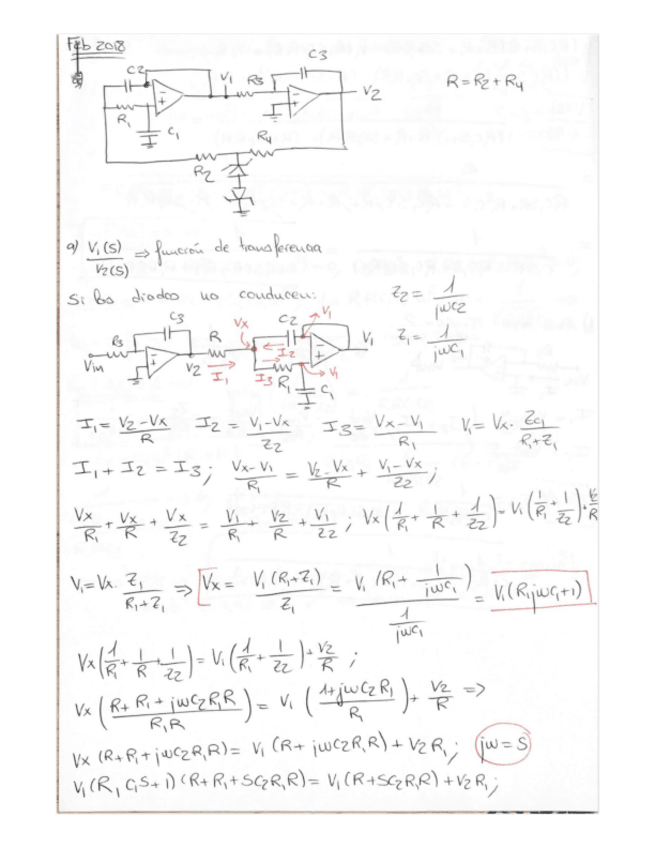 Feb 2018
C2 C3
V1 R3 V2 R=R2+R4
R1 C1 R4
R2
a) V1(S)/V2(S) ⇒ función de transferencia
Si los diodos no conducen:
Z2 = 1/jωC2
Z1 = 1/jωC1
Vin R3 C3 V2 R Vx C2 V1 V1
I1 I2 I3 R1 V1 C1
I1 = V2-Vx/R I2 = V1-Vx/Z2 I3 = Vx-V1/R1 V1 = Vx· ZC1/R1+Z1
I1 + I2 = I3; Vx-V1/R1 = V2-Vx/R + V1-Vx/Z2;
Vx/R1 + Vx/R + Vx/Z2 = V1/R1 + V2/R + V1/Z2; Vx(1/R1 + 1/R + 1/Z2) = V1(1/R1 + 1/Z2) + V2/R
V1 = Vx· Z1/R1+Z1 ⇒ Vx = V1(R1+Z1)/Z1 = V1(R1 + 1/jωC1)/(1/jωC1) = V1(R1jωC1+1)
Vx(1/R1 + 1/R + 1/Z2) = V1(1/R1 + 1/Z2) + V2/R ;
Vx(R+R1+jωC2R1R/R1R) = V1(1+jωC2R1/R1) + V2/R ⇒
Vx (R+R1+jωC2R1R) = V1 (R+jωC2R1R) + V2R1; jω=S
V1(R1C1S+1)(R+R1+SC2R1R) = V1(R+SC2R1R)+V2R1;